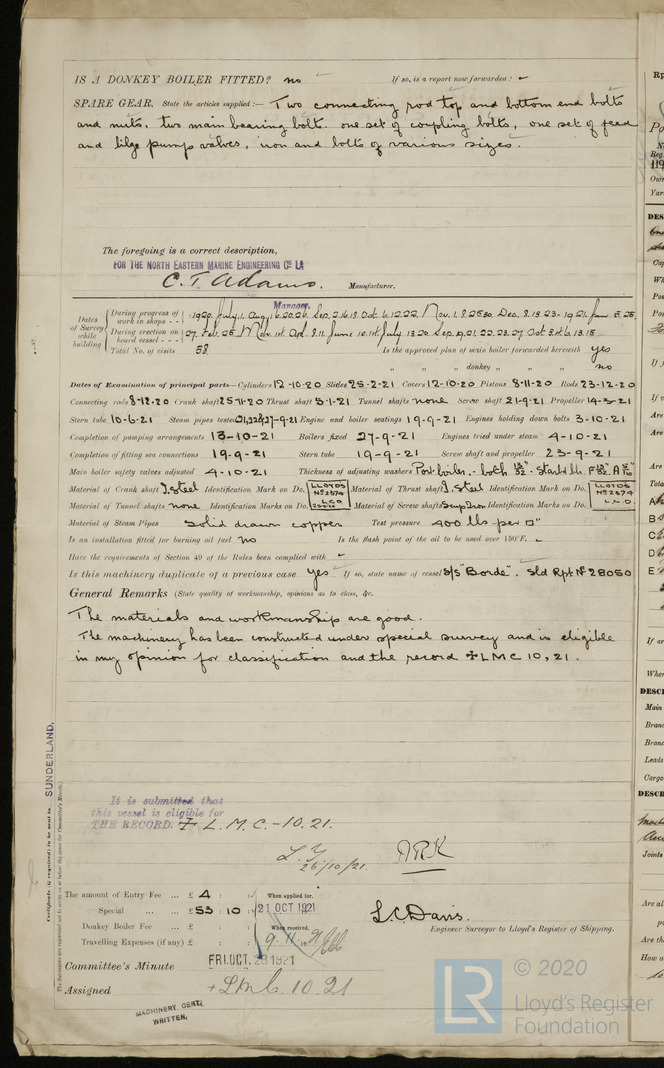 IS A DONKEY BOILER FITTED? no If so, is a report now forwarded? -
SPARE GEAR. State the articles supplied:— Two connecting rod top and bottom end bolts
and nuts, two main bearing bolts. one set of coupling bolts, one set of feed
and bilge pump valves, iron and bolts of various sizes.
The foregoing is a correct description,
FOR THE NORTH EASTERN MARINE ENGINEERING Co Ld
C. T. Adams. Manufacturer.
Manager.
Dates of Survey while building
During progress of work in shops - - 1920. July. 1. Aug. 6. 20. 26. Sep. 2. 16. 18. Oct. 6. 12. 22. Nov. 1. 8. 25. 30. Dec. 8. 13. 23. 1921. Jan. 5. 25.
During erection on board vessel - - - 27. Feb. 25. Mch. Apl. 8. 11. June 10. July 13. 20. Sep. 9. 21. 22. 23. 27. Oct 3. 4. 6. 13. 15.
Total No. of visits 58 Is the approved plan of main boiler forwarded herewith yes
" " " donkey " " " no
Dates of Examination of principal parts—Cylinders 12-10-20 Slides 25-2-21 Covers 12-10-20 Pistons 8-11-20 Rods 23-12-20
Connecting rods 8-12-20 Crank shaft 25-11-20 Thrust shaft 5-1-21 Tunnel shafts none Screw shaft 21-9-21 Propeller 14-3-21
Stern tube 10-6-21 Steam pipes tested 21,22&27-9-21 Engine and boiler seatings 19-9-21 Engines holding down bolts 3-10-21
Completion of pumping arrangements 13-10-21 Boilers fixed 27-9-21 Engines tried under steam 4-10-21
Completion of fitting sea connections 19-9-21 Stern tube 19-9-21 Screw shaft and propeller 23-9-21
Main boiler safety valves adjusted 4-10-21 Thickness of adjusting washers Port boiler.- both
Material of Crank shaft I. Steel Identification Mark on Do. LLOYDS No 2374 L.C.D. Material of Thrust shaft I. Steel Identification Mark on Do. LLOYDS No 2374 L.C.D.
Material of Tunnel shafts none Identification Marks on Do. Material of Screw shafts Scrap Iron Identification Marks on Do.
Material of Steam Pipes Solid drawn copper Test pressure 400 lbs per □"
Is an installation fitted for burning oil fuel no Is the flash point of the oil to be used over 150°F. -
Have the requirements of Section 49 of the Rules been complied with -
Is this machinery duplicate of a previous case yes If so, state name of vessel S/S "Borde". Sld Rpt No 28050
General Remarks (State quality of workmanship, opinions as to class, &c.
The materials and workmanship are good.
The machinery has been constructed under special survey and is eligible
in my opinion for classification and the record ✠LMC 10,21.
It is submitted that
this vessel is eligible for
THE RECORD. ✠ L.M.C.-10.21.
26/10/21.
The amount of Entry Fee ... £ 4 : : When applied for,
Special ... ... £ 53 : 10 : 21 OCT 1921
Donkey Boiler Fee ... £ : : When received,
Travelling Expenses (if any) £ : : 9.11.1921
L.C. Davis.
Engineer Surveyor to Lloyd's Register of Shipping.
Committee's Minute FRI. OCT. 28 1921
Assigned + L.M.C. 10.21
MACHINERY CERT.
WRITTEN.
Certificate (if required) to be sent to SUNDERLAND.
(The Surveyors are requested not to write on or below the space for Committee's Minute.)
LR © 2020
Lloyd's Register
Foundation